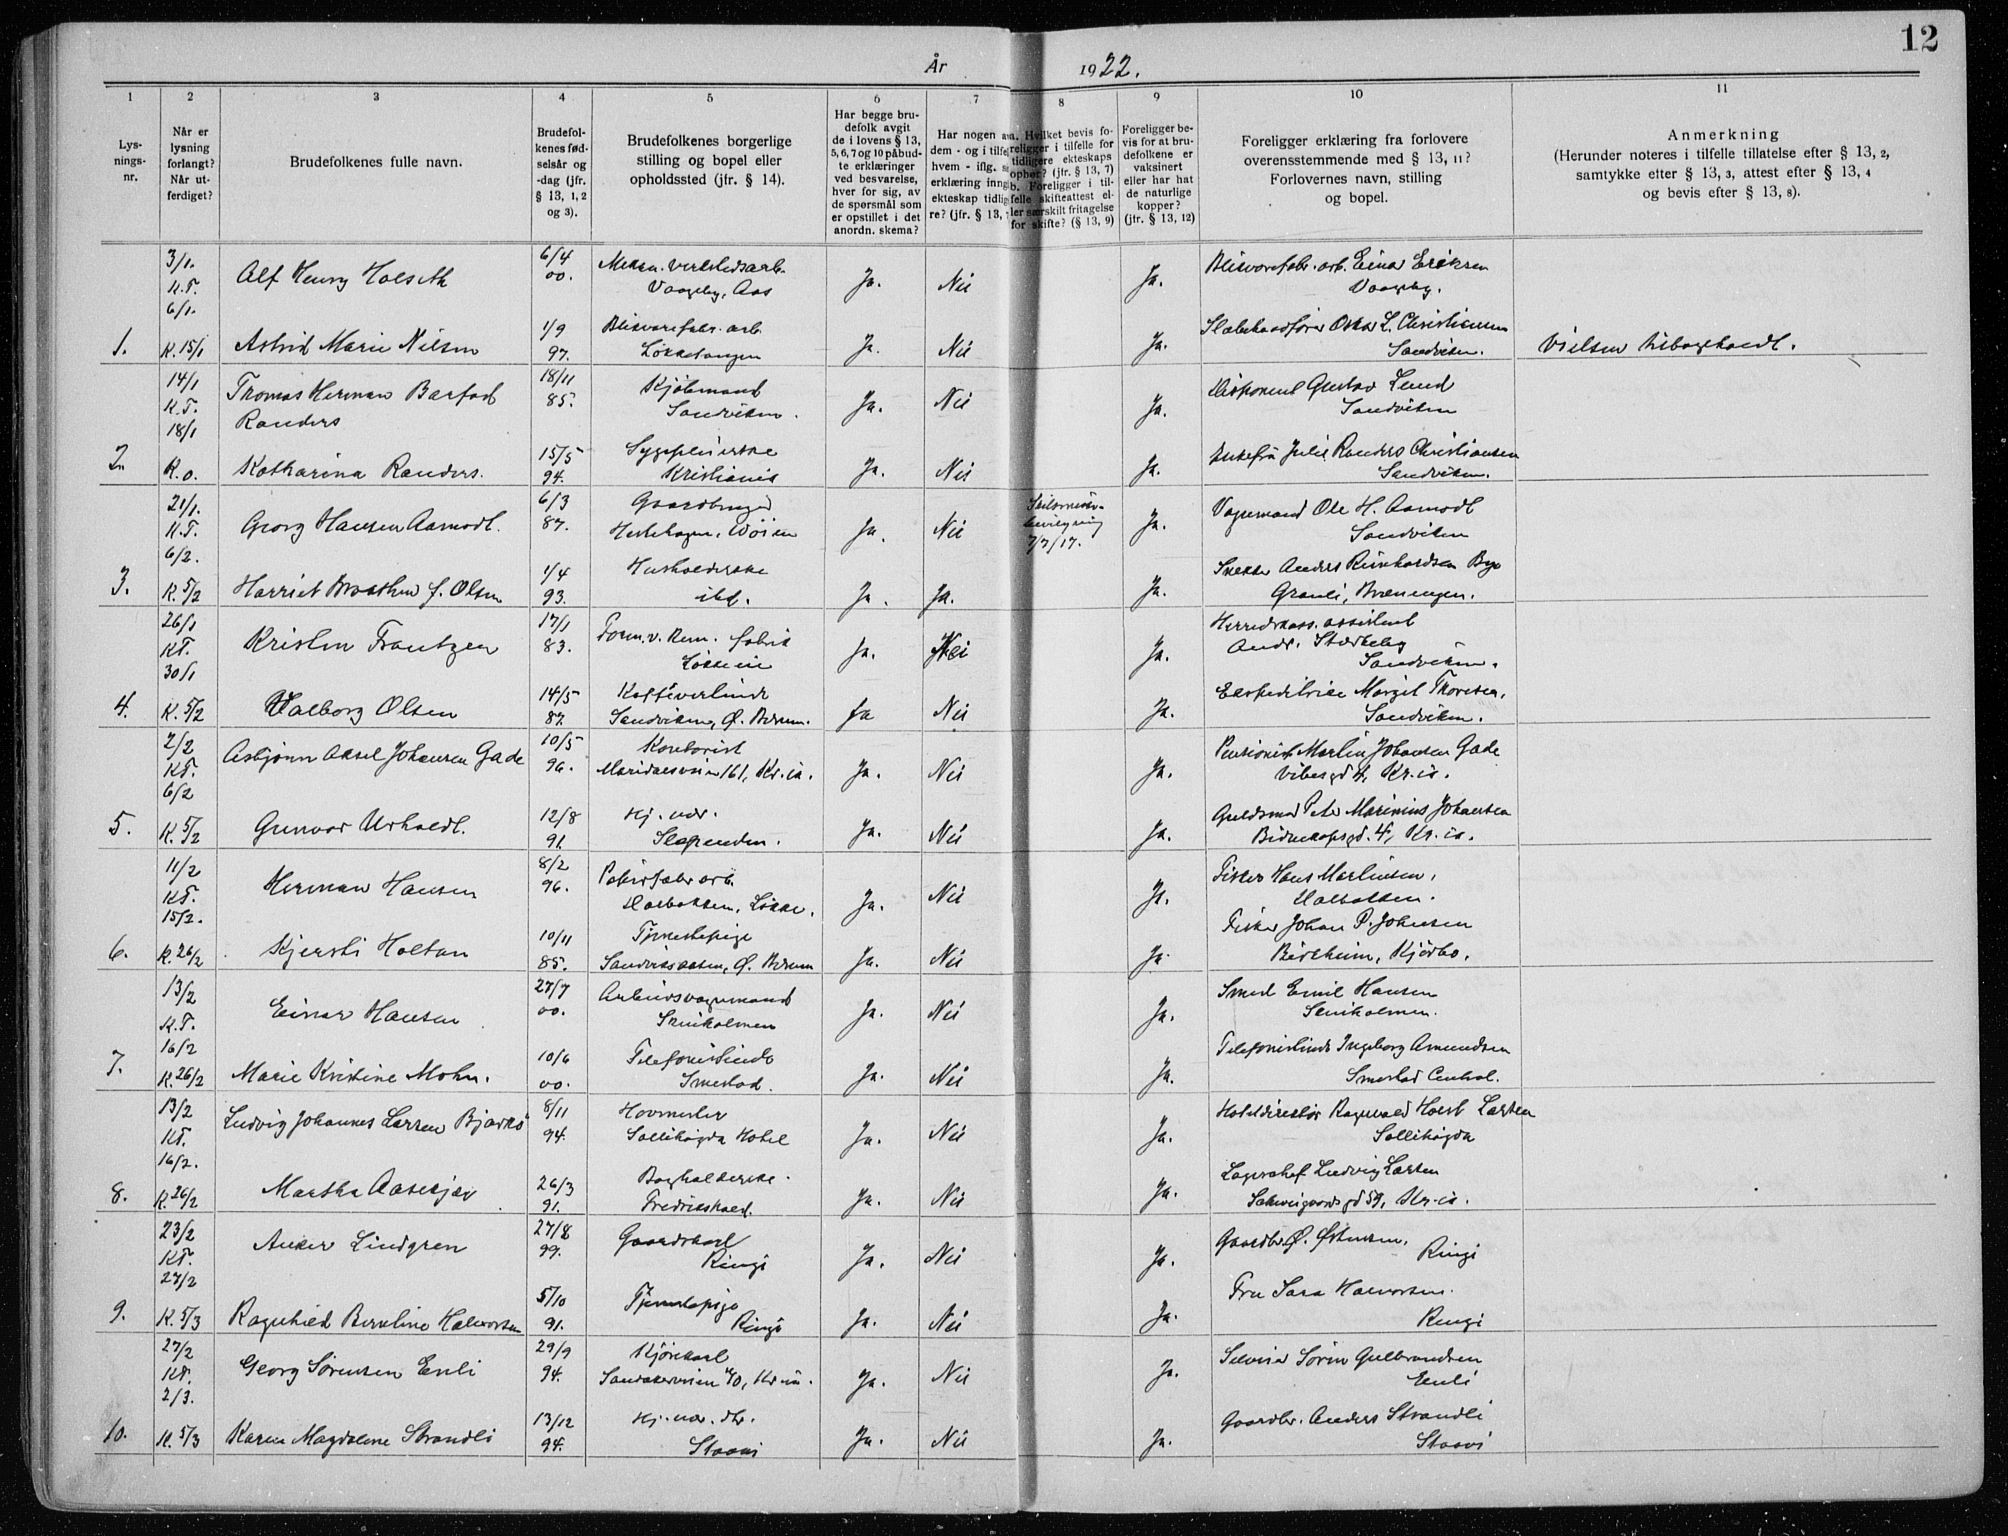 12
År 1922.
1 2 3 4 5 6 7 8 9 10 11
Lys-
nings-
nr.
Når er
lysning
forlangt?
Når ut-
ferdiget?
Brudefolkenes fulle navn.
Brudefol-
kenes fød-
selsår og
-dag (jfr.
§ 13, 1, 2
og 3).
Brudefolkenes borgerlige
stilling og bopel eller
opholdssted (jfr. § 14).
Har begge bru-
defolk avgit
de i lovens § 13,
5, 6, 7 og 10 påbud-
te erklæringer
ved besvarelse,
hver for sig, av
de spørsmål som
er opstillet i det
anordn. skema?
Har nogen av
dem - og i tilfe
hvem - iflg.
erklæring inng
ekteskap tidlig
re? (jfr. § 13,
a. Hvilket bevis fo-
religger i tilfelle for
tidligere ekteskaps
ophør? (jfr. § 13, 7)
b. Foreligger i til-
felle skifteattest el-
ler særskilt fritagelse
for skifte? (§ 13, 9)
Foreligger be-
vis for at bru-
defolkene er
vaksinert
eller har hat
de naturlige
kopper?
(jfr. § 13, 12)
Foreligger erklæring fra forlovere
overensstemmende med § 13, 11?
Forlovernes navn, stilling
og bopel.
Anmerkning
(Herunder noteres i tilfelle tillatelse efter § 13, 2,
samtykke efter § 13, 3, attest efter § 13, 4
og bevis efter § 13, 8).
3/1. K.T. 6/1. Alf Henry Holseth 6/4 00. Mekan. verkstedsarb. Vaageby, Aas Ja. Nei Ja. Blikvarefabr. arb. Einar Eriksen Vaageby.
1. K. 15/1 Astrid Marie Nilsen 1/9 97. Blikvarefabr. arb. Løkketangen Ja. Nei Ja. Oskar L. Christiansen Sandviken. Vielsen tilbageholdt.
14/1 K.T. 18/1 Thomas Herman Barfod Randers 18/11 85. Kjøbmand Sandviken. Ja. Nei Ja. Disponent Gustav Lund Sandviken
2. K. o. Katharina Randers. 15/5 94. Sygepleierske Kristiania Ja. Nei Ja. Enkefru Julie Randers Christiansen Sandviken.
21/1. K.T. 6/2. Georg Hansen Aamodt. 6/3 87. Gaardbruger Wøien Ja. Nei Skilsmisse-
bevilgning
7/7/17. Ja. Vognmand Ole H. Aamodt Sandviken
3. K. 5/2 Harriet Braathen f. Olsen 1/4 93. Husholderske ibd. Ja. Ja. Ja. Snekker Anders Reinhardsen Bye Granli,
26/1 KT. 30/1 Kristen Frantzen 17/1 83. Form. v. Rem. fabrik Løkke Ja. Nei Ja. Herredskass. assistent Andr. Størkeby Sandviken.
4. K. 5/2 Valborg Olsen 14/5 87. Kafféværtinde Sandviken, Ø. Bærum. Ja Nei Ja. Ekspeditrice Margit Thoresen, Sandviken.
2/2 KT. 6/2 Asbjørn Aksel Johansen Gade 10/5 96. Kontorist Maridalsveien 161, Kr.ia. Ja. Nei Ja. Pensionist Martin Johansen Gade Vibesgd 4, Kr.ia.
5. K. 5/2 Gunvor Urholdt. 12/8 91. Hj. vær. Slependen. Ja. Nei Ja. Guldsmed Peter Marinius Johansen Bidenkapsgd. 4, Kr.ia.
11/2 KT. 15/2. Herman Hansen 8/2 96. Papirfabr. arb. Løkke. Ja. Nei Ja. Fisker Hans Martinsen,
6. K. 26/2 Kjersti Holtan 10/11 85. Tjenestepige Sandviksaasen, Ø. Bærum Ja. Nei Ja. Fisker Johan P. Johnsen Kjørbo.
13/2 K.T. 16/2 Einar Hansen 27/7 00. Arbeidsvognmand Sneiholmen Ja. Nei Ja. Smed Emil Hansen Sneiholmen.
7. K. 26/2 Marie Kristine Mohn. 10/6 00. Telefonistinde Smestad. Ja. Nei Ja. Telefonistinde Ingeborg Amundsen Smestad Central.
13/2 KT. 16/2. Ludvig Johannes Larsen Bjarkø 8/11 94. Hovmester Sollihøgda Hotel Ja. Nei Ja. Hoteldirektør Ragnvald Horst Larsen Sollihøgda
8. K. 26/2 Martha Aaserjær 26/3 91. Bogholderske. Fredrikshald. Ja. Nei Ja. Lagerchef Ludvig Larsen Schweigaardsgd 59, Kr.ia.
23/2 KT. 27/2 Anker Lindgren 27/8 99. Gaardskarl Ringi Ja. Nei Ja. Gaardbr. Ø. Østensen, Ringi
9. K. 5/3 Ragnhild Berntine Halvorsen 5/10 91. Tjenestepige Ringi Ja. Nei Ja. Fru Sara Halvorsen. Ringi
27/2 KT. 2/3. Georg Sørensen Enli 29/9 94. Kjørekarl Sandakerveien 40, Kr.ia. Ja. Nei Ja. Selveier Søren Gulbrandsen Enli
10. K. 5/3 Karen Magdalene Strandli 13/12 94. Hj. vær. dtr. Staavi Ja. Nei Ja. Gaardbr. Anders Strandli Staavi